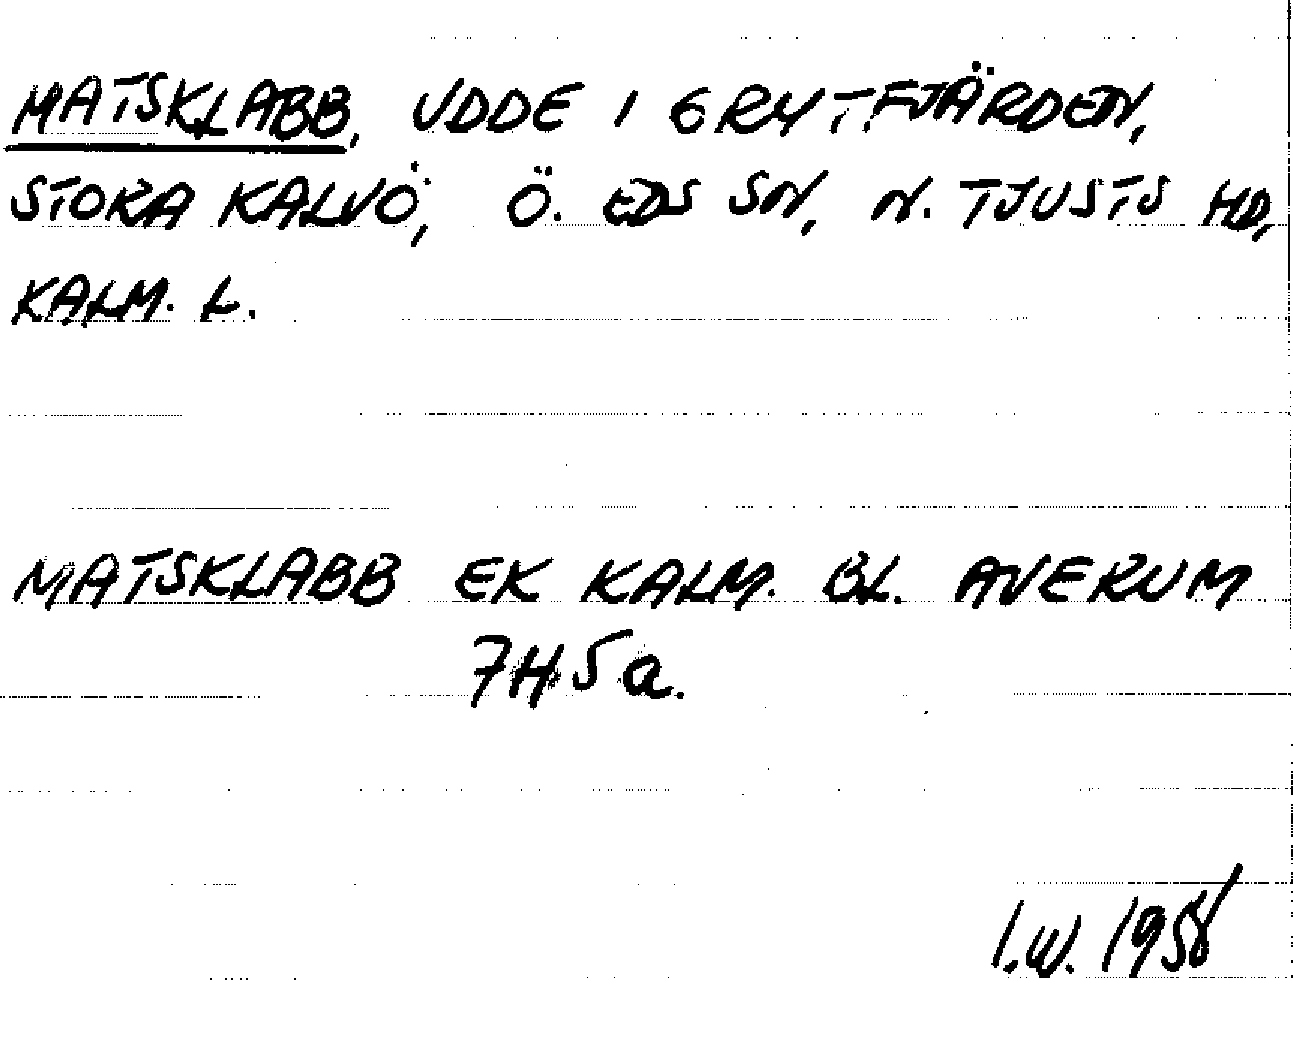 MATSKLABB, UDDE I GRYTFJÄRDEN,
STORA KALVÖ, Ö. EDS SN, N. TJUSTS HD,
KALM. L.
MATSKLABB EK KALM. BL. AVERUM
7H5a.
I.W. 1958